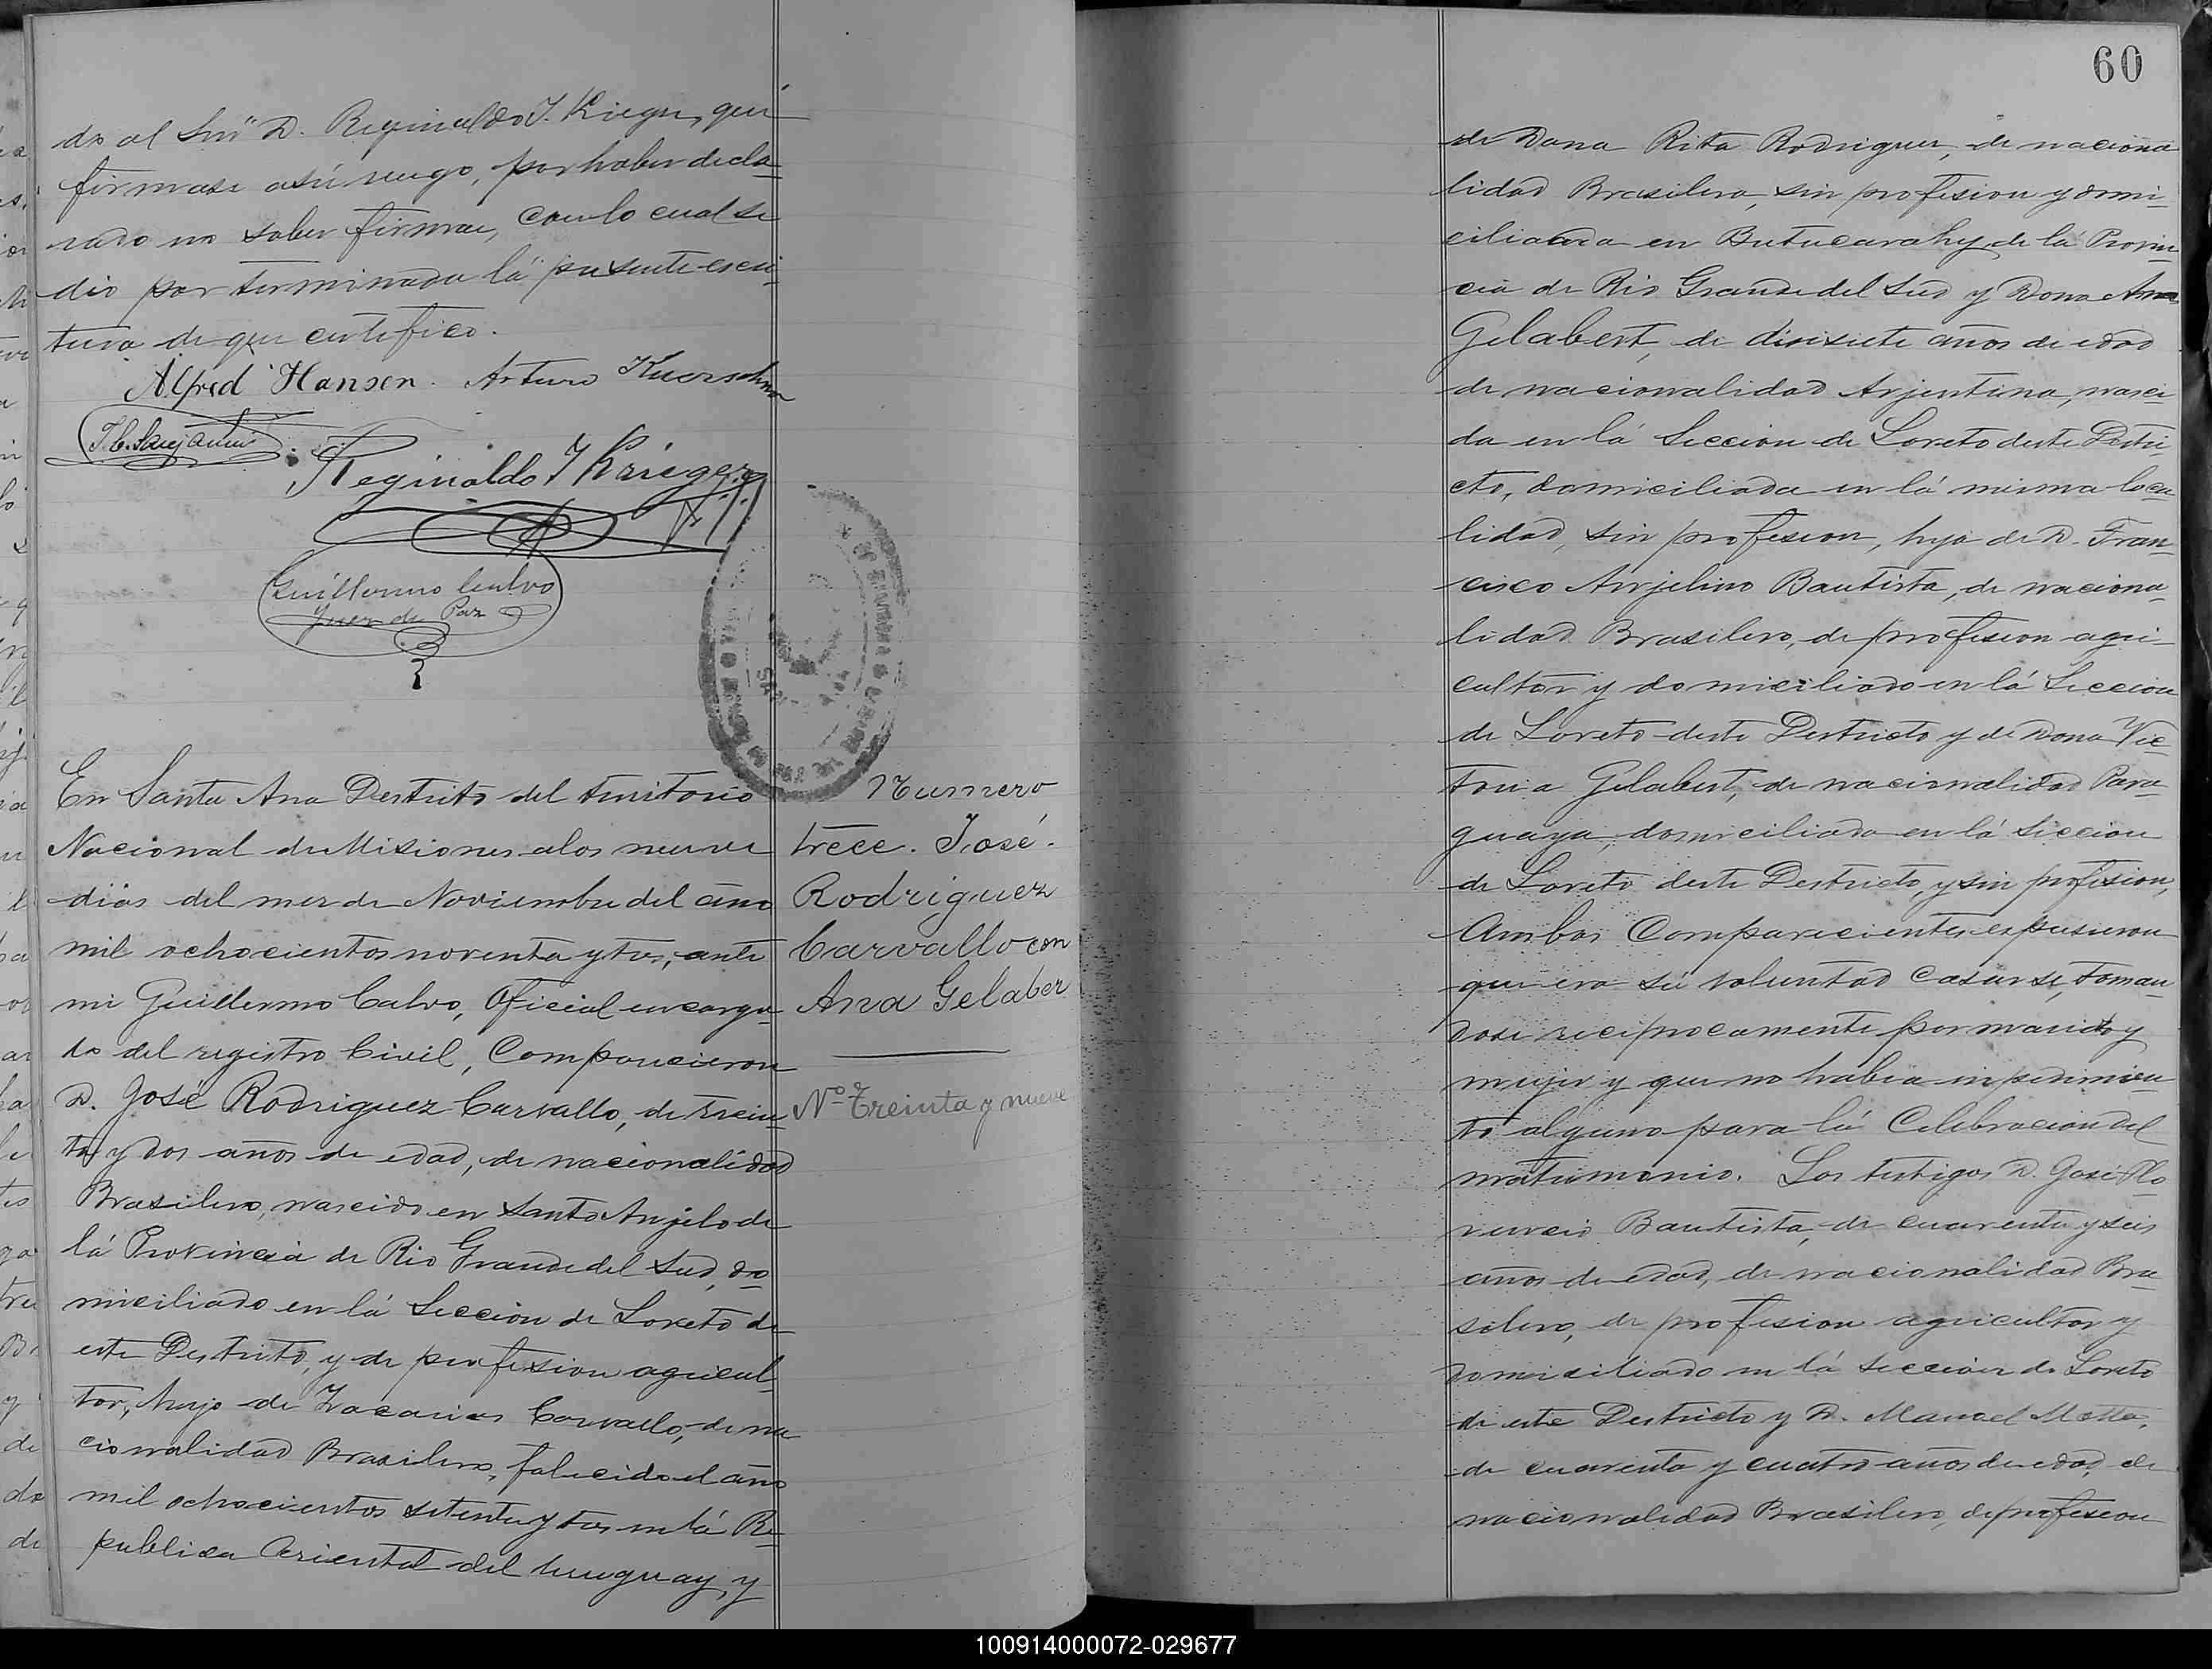 do al Sor D. Reginaldo J. Krieger, que
firmase asú ruego, por haber decla-
rado no saber firmar, con lo cual se
dió por terminada lá presente escri-
tura de que certifico.
Alfred Hansen. Arturo
Reginaldo J Krieger
Guillermo Calvo
Juez de Paz
En Santa Ana Destrito del territorio
Nacional de Misiones alos nueve
diás del mes de Noviembre del año
mil ochocientos noventa y tres, ante
mi Guillermo Calvo, Oficial encarga-
do del registro Civil, Comparecieron
D. José Rodriguez Carvallo, de trein-
ta y dos años de edad, de nacionalidad
Brasilero, nascido en Santo Anjelo de
lá Provincia de Rio Grande del Sud, do-
miciliado en lá Seccion de Loreto de
este Destrito, y de profesion agricul-
tor, hijo de Zacarias Carvallo, de na
cionalidad Brasilero, falecido el año
mil ochocientos setenta y tres en lá Re-
publica Oriental del Uruguay, y
Numero
trece. José
Rodriguez
Carvallo con
Ana Gelaber
No Treinta y nueve
60
de Dona Rita Rodriguez, de naciona
lidad Brasilera, sin profesion y domi-
ciliada en Butucarahy de lá Provin-
cia de Rio Grande del Sud y Dona Ana
Gelabert, de diesisiete años de edad
de nacionalidad Arjentina, nasci-
da en lá Seccion de Loreto deste Destri-
cto, domiciliada en lá misma loca-
lidad, sin profesion, hija de D. Fran-
cisco Anjelino Bautista, de naciona-
lidad Brasilero, de profesion agri-
cultor y domiciliado en lá Seccion
de Loreto deste Destricto y de Dona Vic-
toria Gelabert, de nacionalidad Para-
guaya, domiciliada en lá Seccion
de Loreto deste Destricto, y sin profesion,
Ambos Comparecientes espusieron
que era sú voluntad Casarse, toman-
dose reciprocamente por marido y
mujer y que no habia impedimien-
to alguno para lá Celebracion del
matrimonio. Los testigos D. José Flo-
rencio Bautista, de cuarenta y seis
años de edad, de nacionalidad Bra-
silero, de profesion agricultor y
domiciliado en lá seccion de Loreto
de este Destricto y D. Manoel Motta,
de cuarenta y cuatro años de edad, de
nacionalidad Brasilero, de profesion
100914000072-029677